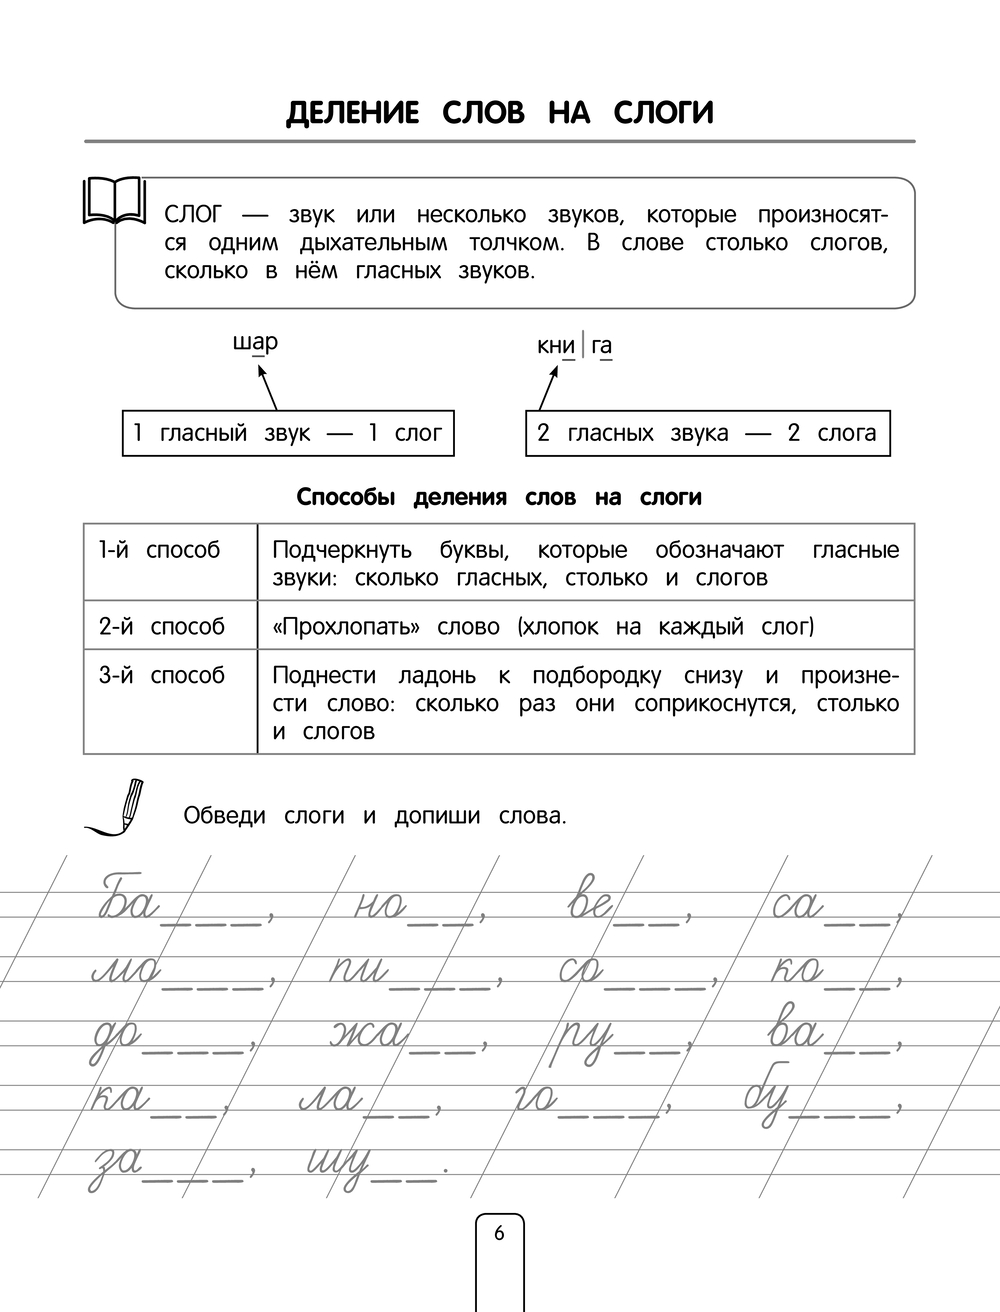 ДЕЛЕНИЕ СЛОВ НА СЛОГИ
СЛОГ — звук или несколько звуков, которые произносят-
ся одним дыхательным толчком. В слове столько слогов,
сколько в нём гласных звуков.
шар кни|га
1 гласный звук — 1 слог 2 гласных звука — 2 слога
Способы деления слов на слоги
1-й способ Подчеркнуть буквы, которые обозначают гласные
звуки: сколько гласных, столько и слогов
2-й способ «Прохлопать» слово (хлопок на каждый слог)
3-й способ Поднести ладонь к подбородку снизу и произне-
сти слово: сколько раз они соприкоснутся, столько
и слогов
Обведи слоги и допиши слова.
Ба___, но__, ве__, са__,
мо___, пи___, со___, ко__,
до___, жа__, ру__, ва__,
ка__, ла__, го___, бу___,
за___, шу__.
6